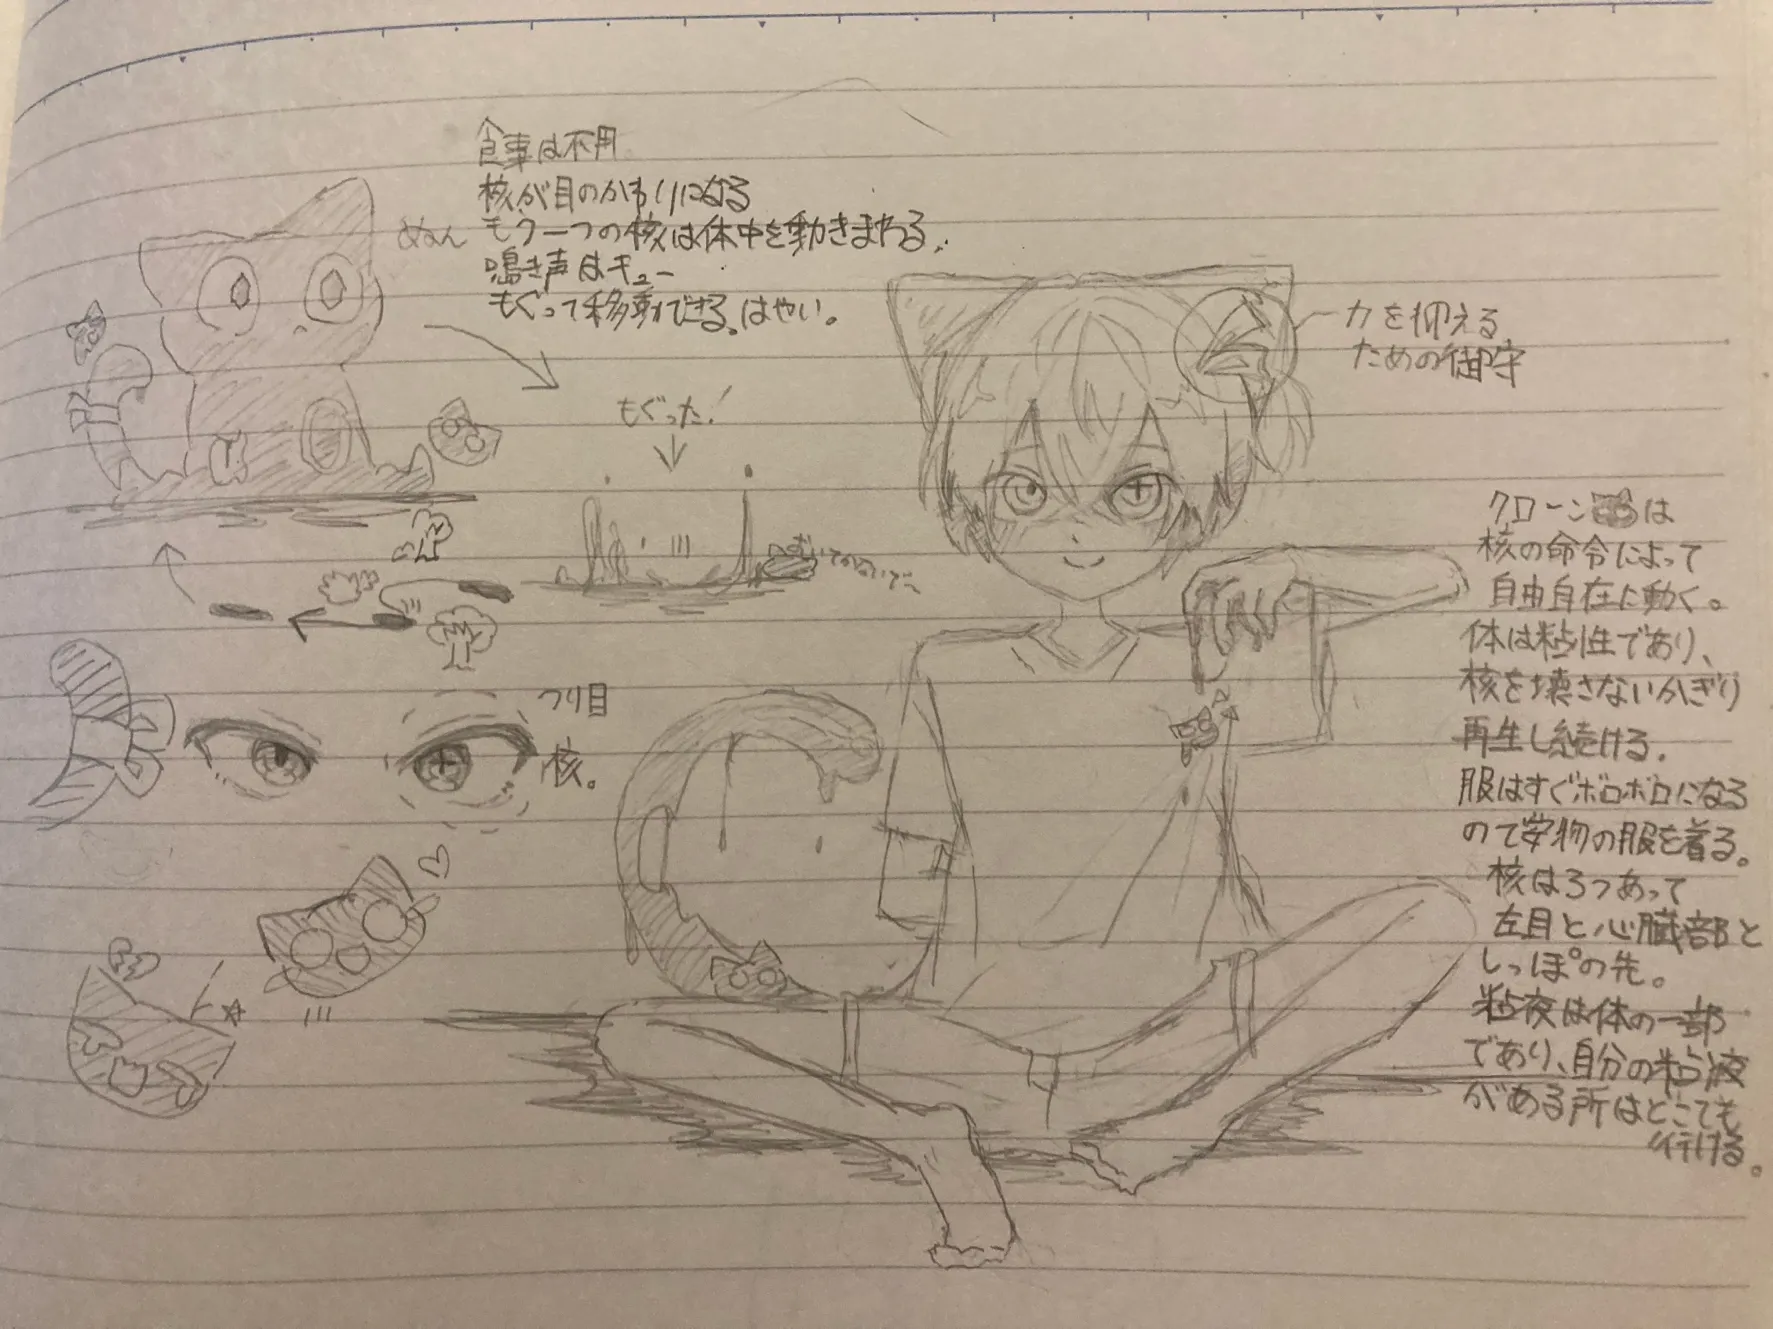 食事は不用
核が目のかわりになる
もう一つの核は体中を動きまわる。
鳴き声はキュー
もぐって移動できる。はやい。
ぬぅん
もぐった!
おいてかないで〜
力を抑える
ための御守
つり目
核。
クローン は
核の命令によって
自由自在に動く。
体は粘性であり、
核を壊さないかぎり
再生し続ける。
服はすぐボロボロになる
ので安物の服を着る。
核は3つあって
左目と心臓部と
しっぽの先。
粘液は体の一部
であり、自分の粘液
がある所はどこでも
行ける。